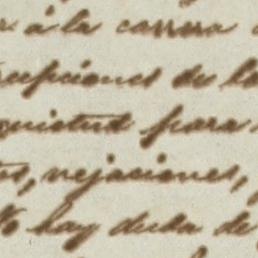 á la carrera
cepciones de la
quietud para
tos, vejaciones,
No hay duda de